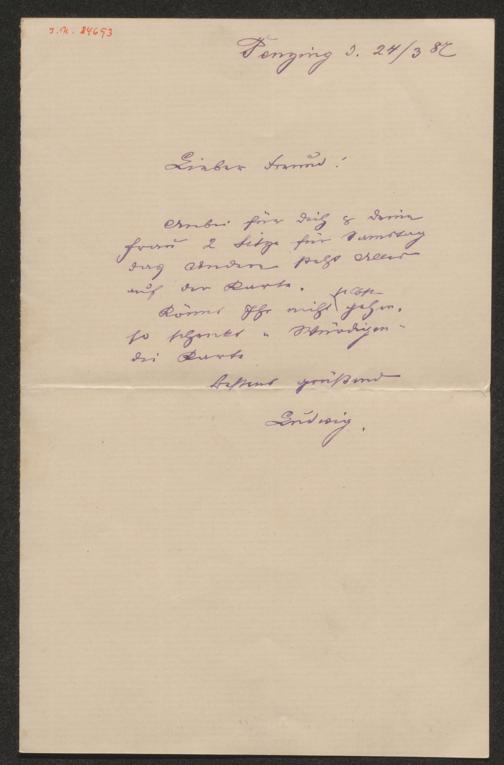 J.N. 24693
Penzing d. 24/3 87
Lieber Freund!
Anbei für Dich & Deine
Frau 2 Sitze für Samstag
das Andere steht Alles
auf der Karte.
Könnt Ihr nicht gehen,
so schenkt " Würdigen "
die Karte
bestens grüßend
Ludwig.